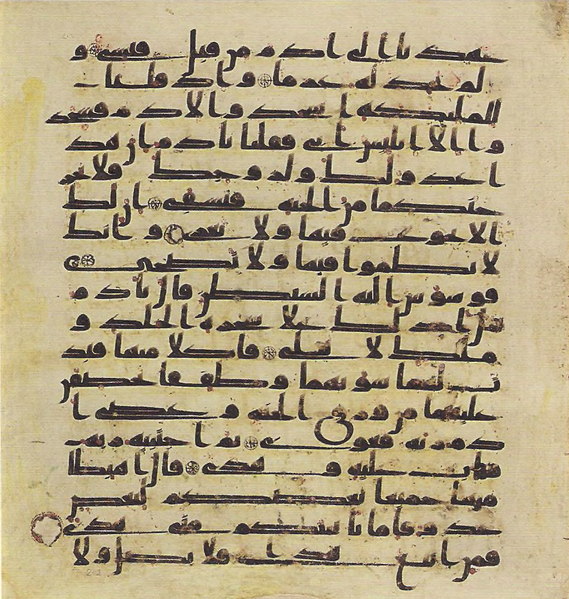 عهدنا الى ادم من قبل فنسي و
لم نجد له عزما واذ قلنا
للمليكة اسجدوا لادم فسجد
وا الا ابليس ابى فقلنا يادم ان هذ
ا عدو لك ولزوجك فلا يخر
جنكما من الجنة فتشقى ان لك
الا تجوع فيها ولا تعرى وانك
لا تظموا فيها ولا تضحى
فوسوس اليه الشيطن قال يادم
هل ادلك على شجرة الخلد و
ملك لا يبلى فاكلا منها فبد
ت لهما سوتهما وطفقا يخصفن
عليهما من ورق الجنة وعصى ا
دم ربه فغوى ثم اجتبيه ربه
فتاب عليه وهدى قال اهبطا
منها جميعا بعضكم لبعض
عدو فاما ياتينكم مني هدى
فمن اتبع هداي فلا يضل ولا